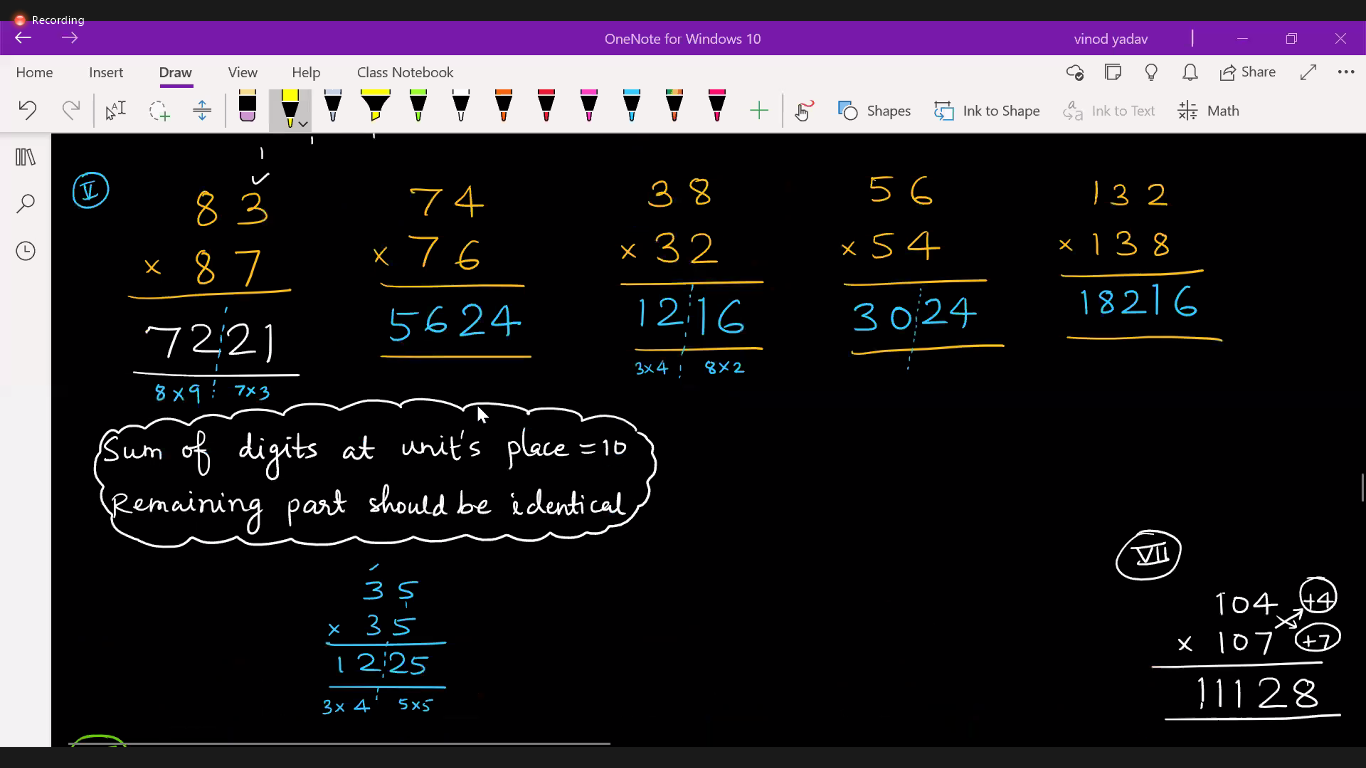 Recording
OneNote for Windows 10
vinod yadav
Home Insert Draw View Help Class Notebook
Share
Shapes Ink to Shape Ink to Text Math
V
83
× 87
7221
8×9 7×3
74
× 76
5624
38
× 32
1216
3×4 8×2
56
× 54
3024
132
× 138
18216
Sum of digits at unit's place = 10
Remaining part should be identical
35
× 35
1225
3×4 5×5
VII
104 +4
× 107 +7
11128